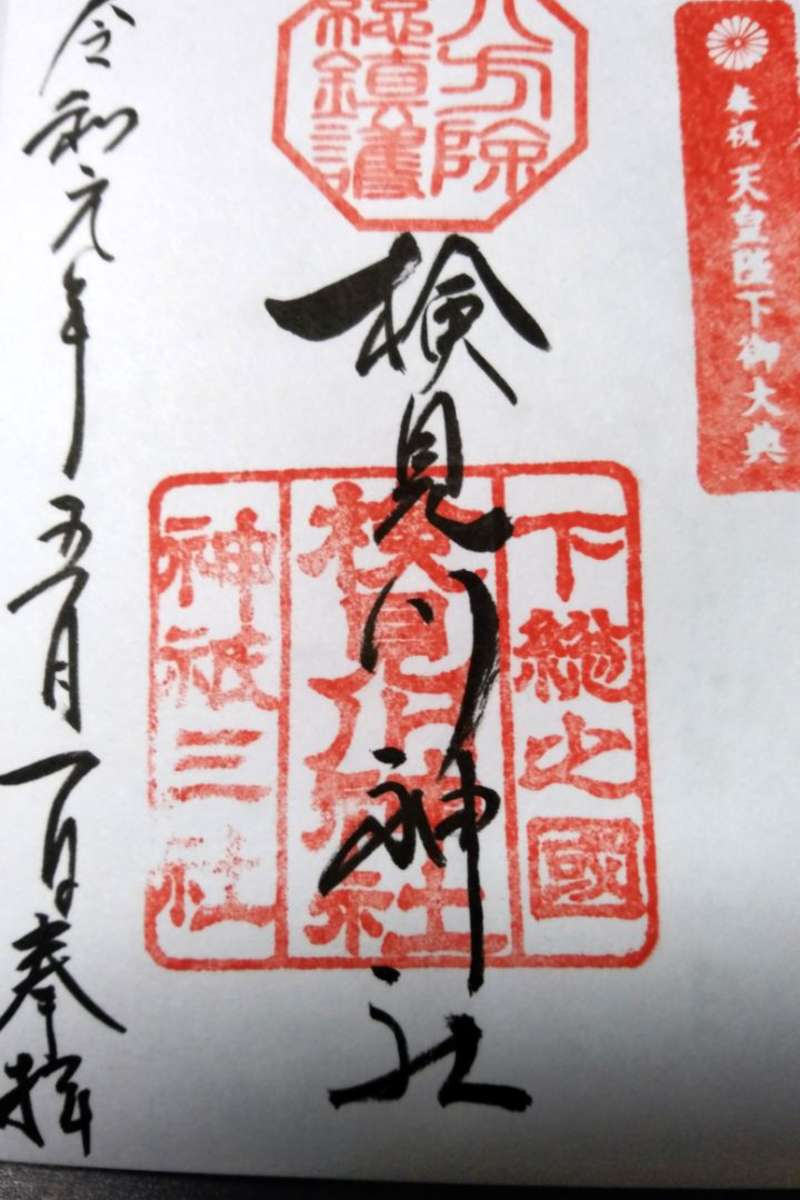 奉祝 天皇陛下御大典
八方除
総鎮護
検見川神社
下総之國
検見川神社
神祇三社
令和元年五月一日奉拝